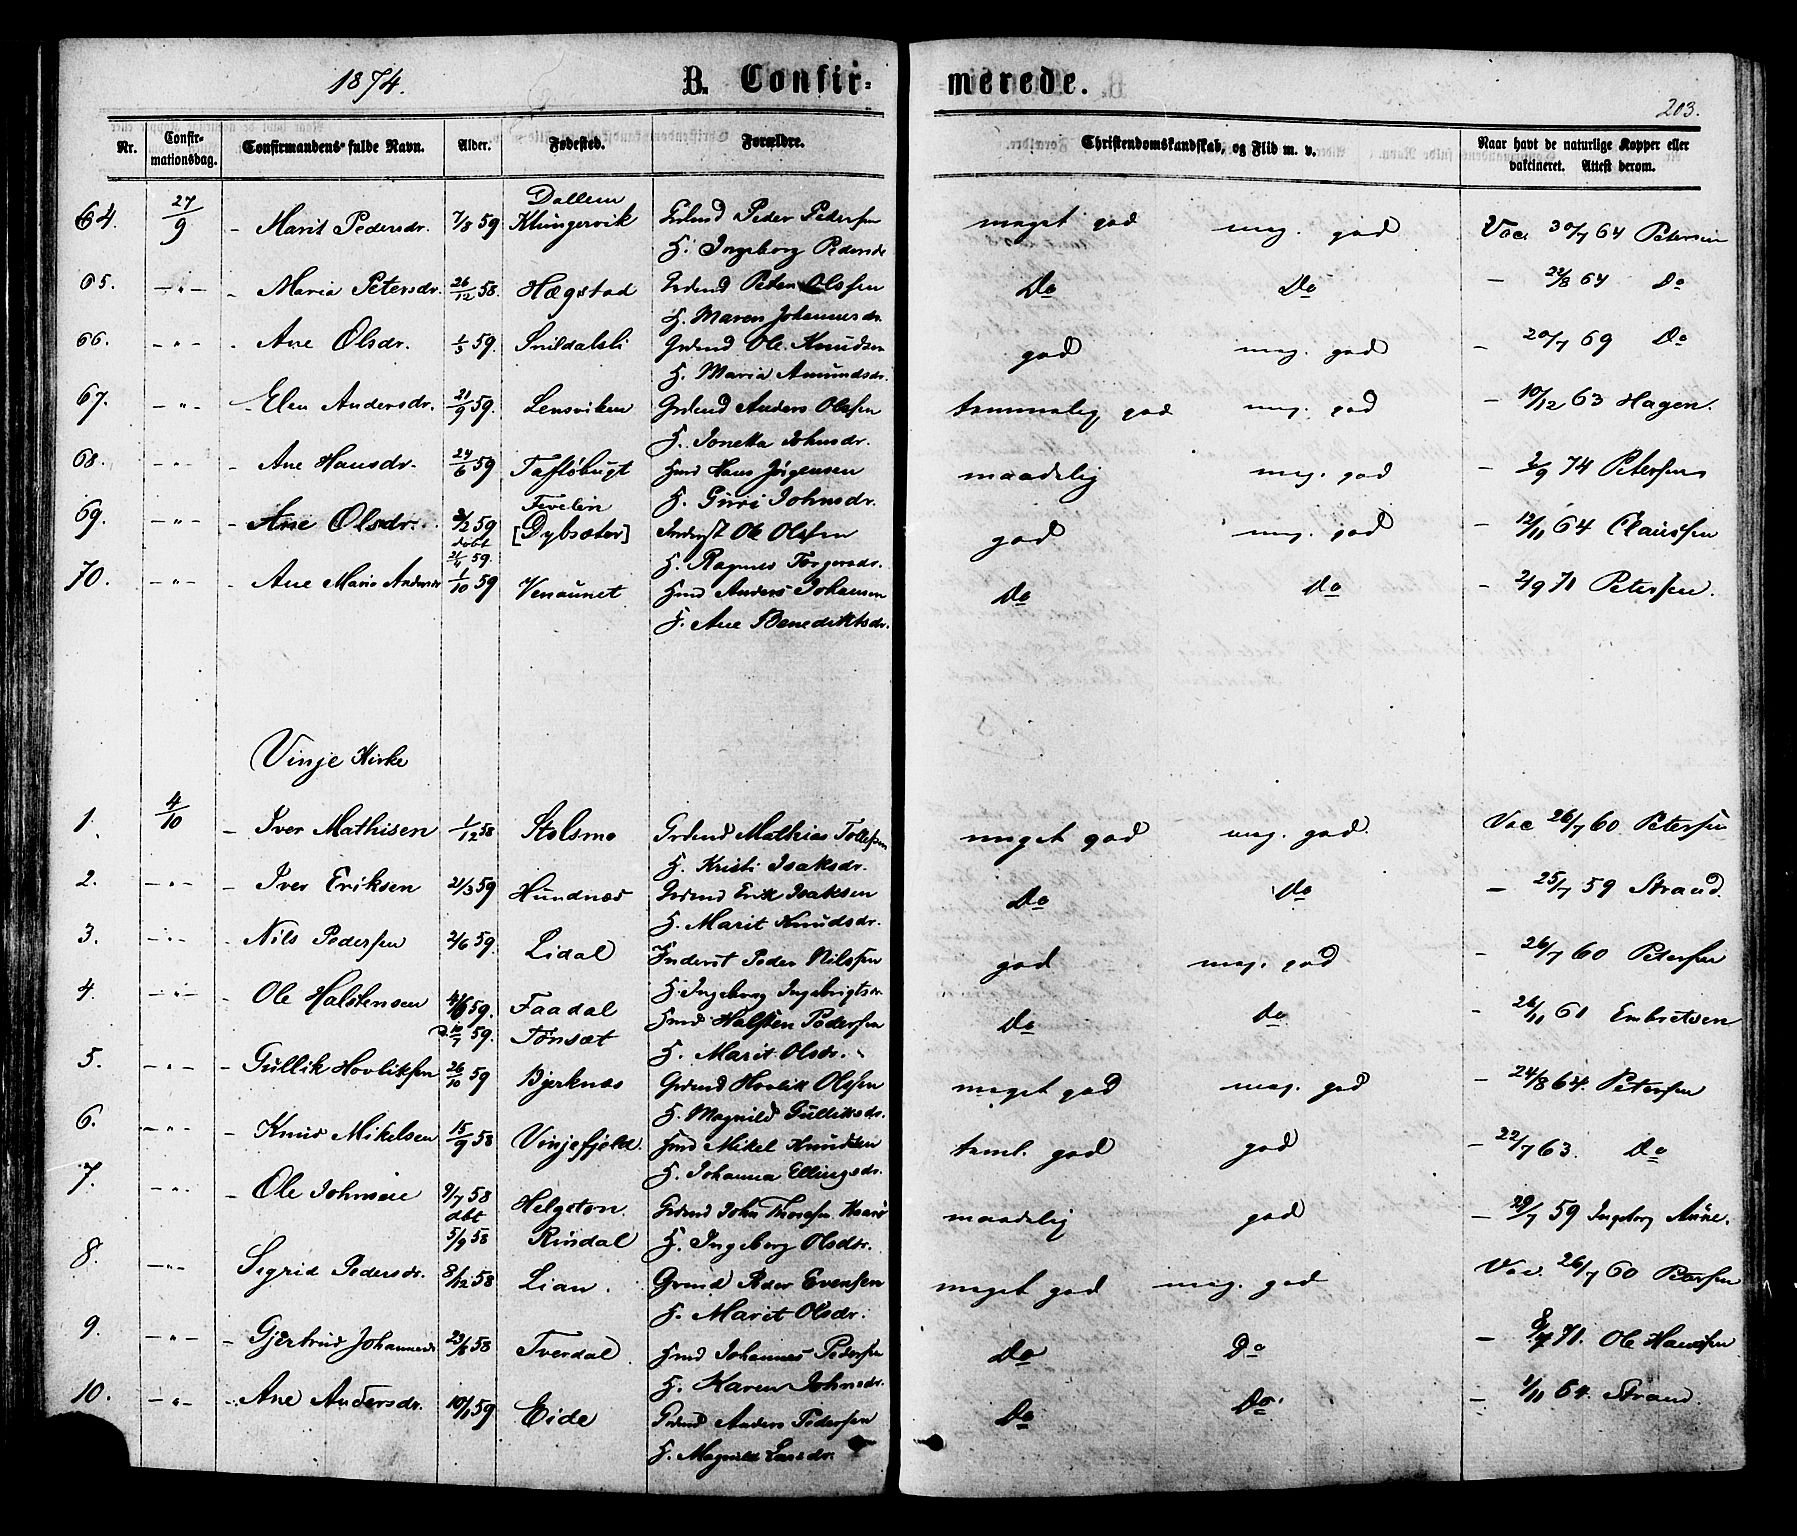 1874.
B. Confir-
merede.
203.
Nr.
Confir-
mationsdag.
Confirmandens fulde Navn.
Alder.
Fødested.
Forældre.
Christendomskundskab, og Flid m. v.
Naar havt de naturlige Kopper eller
vakcineret. Attest derom.
Dallem
64. 27/9 - Marit Pedersdr. 7/8 59 Klungervik Grdmd Peder Pedersen meget god meg. god Vac. 30/7 64 Petersen
H. Ingeborg Pedersdr
65. - " - - Maria Petersdr. 26/12 58. Hægstad Grdmd Peter Olssen Do Do - 24/8 64 Do
H. Maren Johannesdr.
66. - " - - Ane Olsdr. 1/5 59. Snildalsli Grdmd Ole Knudsen god meg. god - 20/7 69 Do
H. Maria Amundsdr.
67. - " - - Elen Andersdr. 21/9 59. Lensviken Grdmd Anders Olssen temmelig god meg. god - 10/12 63 Hagen.
H. Jonetta Johnsdr.
68. - " - - Ane Hansdr. 24/6 59 Taftøbugt Hmd Hans Jørgensen maadelig meg. god - 2/9 74 Petersen
H. Guri Johnsdr.
69. - " - - Ane Olsdr. 2/2 59 [Dybsæter] Inderst Ole Olssen god meg. god - 12/11 64 Claussen
døbt
21/4 59. H. Ragnes Torgersdr.
70. - " - - Ane Maria Andersdr 1/10 59 Venaunet Hmd Anders Johansen Do Do - 2/9 71 Petersen.
H. Ane Benediktsdr.
Vinje Kirke
1. 4/10 - Iver Mathisen 1/12 58 Stolsmo Grdmd Mathias Tollefsen meget god meg. god. Vac 26/7 60 Petersen
H. Kristi Isaksdr.
2. - " - - Iver Eriksen 21/3 59 Hundnæs Grdmd Erik Isaksen Do Do - 25/7 59 Strand.
H. Marit Knudsdr.
3. - " - - Nils Pedersen 2/6 59. Lidal Inderst Peder Nilssen god meg. god - 26/7 60 Petersen
H. Ingeborg Ingebrigtsdr
4. - " - - Ole Halstensen 59. Faadal Hmd Halsten Pedersen Do Do - 26/11 61 Embretsen
59. Tønsæt H. Marit Olsdr.
5. - " - - Gullik Hovliksen 26/10 59 Bjerknæs Grdmd Hovlik Olssen meget god meg. god - 24/8 64. Petersen
H. Magnild Gulliksdr.
6. - " - - Knud Mikelsen 15/9 58 Vinjefjeld. Hmd Mikel Knudsen teml. god god - 22/7 63. Do
H. Johanna Ellingsdr.
7. - " - - Ole Johnsen 9/7 58 Helgeton. Grdmd John Thoresen maadelig god - 29/7 59 Ingeborg Aune.
døbt
5/9 58 Rindal H. Ingeborg Olsdr.
8. - " - Sigrid Pedersdr. 8/12 58 Lian. Grmd Peder Evensen meget god meg. god Vac. 26/7 60 Petersen
H. Marit Olsdr.
9. - " - - Gjertrud Johannesdr 23/6 58 Tverdal. Hmd Johannes Pedersen Do Do - 71. Ole Hanssen
H. Karen Johnsdr.
10. - " - - Ane Andersdr. 10/1 59 Eide Grdmd Anders Pedersen Do Do. - 1/11 64. Strand.
H. Magnild Larsdr.